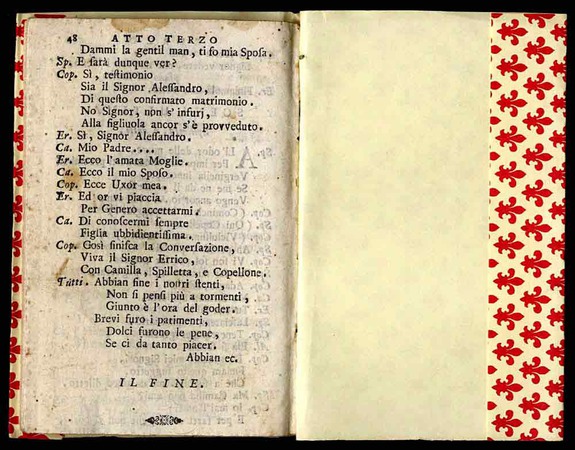 48 ATTO TERZO
Dammi la gentil man, ti fo mia Sposa.
Sp. E sarà dunque ver?
Cop. Sì, testimonio
Sia il Signor Alessandro,
Di questo confirmato matrimonio.
No Signor, non s'infurj,
Alla figliuola ancor s'è provveduto.
Er. Sì, Signor Alessandro.
Ca. Mio Padre....
Er. Ecco l'amata Moglie.
Ca. Ecco il mio Sposo.
Cop. Ecce Uxor mea.
Er. Ed or vi piaccia
Per Genero accettarmi.
Ca. Di conoscermi sempre
Figlia ubbidientissima.
Cop. Così finisca la Conversazione,
Viva il Signor Errico,
Con Camilla, Spilletta, e Copellone.
Tutti. Abbian fine i nostri stenti,
Non si pensi più a tormenti,
Giunto è l'ora del goder.
Brevi furo i patimenti,
Dolci furono le pene,
Se ci da tanto piacer.
Abbian ec.
IL FINE.